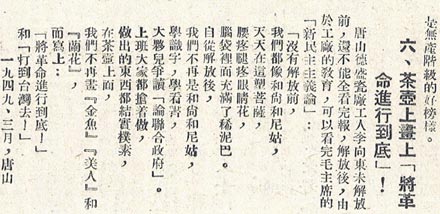 是無產階級的好榜樣。
六、茶壺上畫上「將革
命進行到底」!
唐山德盛瓷廠工人李向東未解放
前,還不能全看完報,解放後,由
於工廠的教育,可以看完毛主席的
「新民主主義論」:
「沒有解放前,
我們都像和尚和尼姑,
天天在這塑菩薩,
腰疼腿疼眼睛花,
腦袋裡面充滿了稀泥巴。
自從解放後,
我們不再是和尚和尼姑,
學識字,學看書,
大夥兒爭讀「論聯合政府」。
上班大家都搶着做,
做出的東西都結實樸素,
在茶壺上面,
我們不再畫「金魚」「美人」和
「蘭花」,
而寫上:
「將革命進行到底!」
和「打到台灣去!」
一九四九、三月,唐山